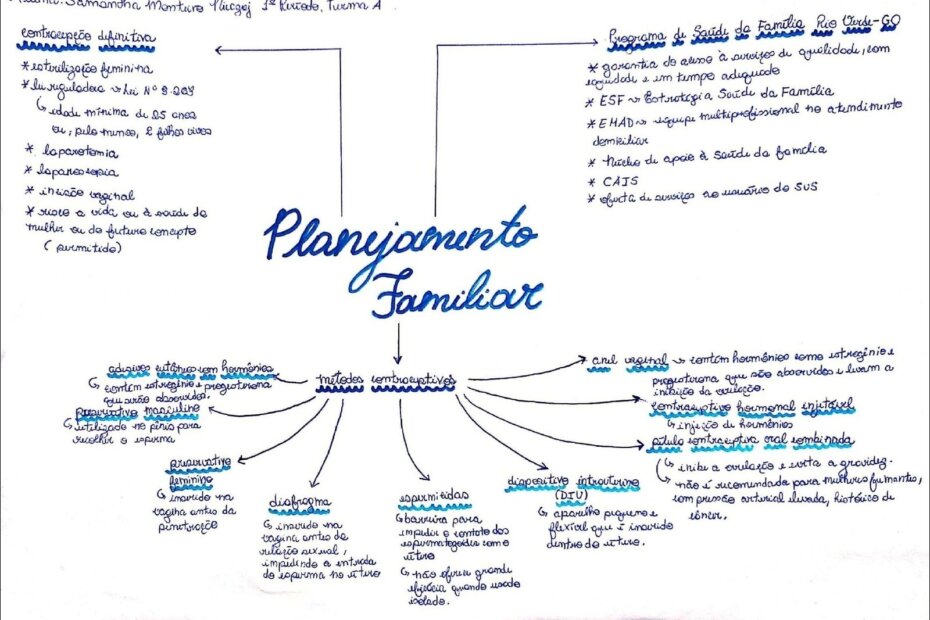 Samantha Monture 1º Período, Turma A.
contracepção definitiva
* esterilização feminina
* lei reguladora → Lei Nº 9.263
↳ idade mínima de 25 anos
ou, pelo menos, 2 filhos vivos
* laparotomia
* laparoscopia
* incisão vaginal
* risco a vida ou à saúde da
mulher ou do futuro concepto
(permitido)
Programa de Saúde da Família Rio Verde-GO
* garantia do acesso à serviços de qualidade, com
equidade e em tempo adequado
* ESF → Estratégia Saúde da Família
* EMAD → equipe multiprofissional no atendimento
domiciliar
* Núcleo de apoio à Saúde da família
* CAIS
* oferta de serviços ao usuário do SUS
Planejamento
Familiar
métodos contraceptivos
adesivos cutâneos com hormônios
↳ contém estrogênio e progesterona
que serão absorvidos.
preservativo masculino
↳ utilizado no pênis para
recolher o esperma
preservativo
feminino
↳ inserido na
vagina antes da
penetração
diafragma
↳ inserido na
vagina antes da
relação sexual,
impedindo a entrada
do esperma no útero
espermicidas
↳ barreira para
impedir o contato dos
espermatozoides com o
útero
↳ não oferece grande
eficácia quando usado
isolado.
dispositivo intrauterino
(DIU)
↳ aparelho pequeno e
flexível que é inserido
dentro do útero.
anel vaginal → contém hormônios como estrogênio e
progesterona que são absorvidos e levam a
inibição da ovulação.
contraceptivo hormonal injetável
↳ injeção de hormônios
pílula contraceptiva oral combinada
↳ inibe a ovulação e evita a gravidez.
↳ não é recomendada para mulheres fumantes,
com pressão arterial elevada, histórico de
câncer.